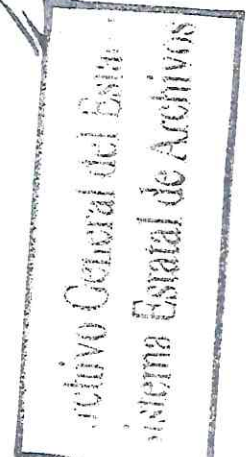 rchivo General del Esta
istema Estatal de Archivos